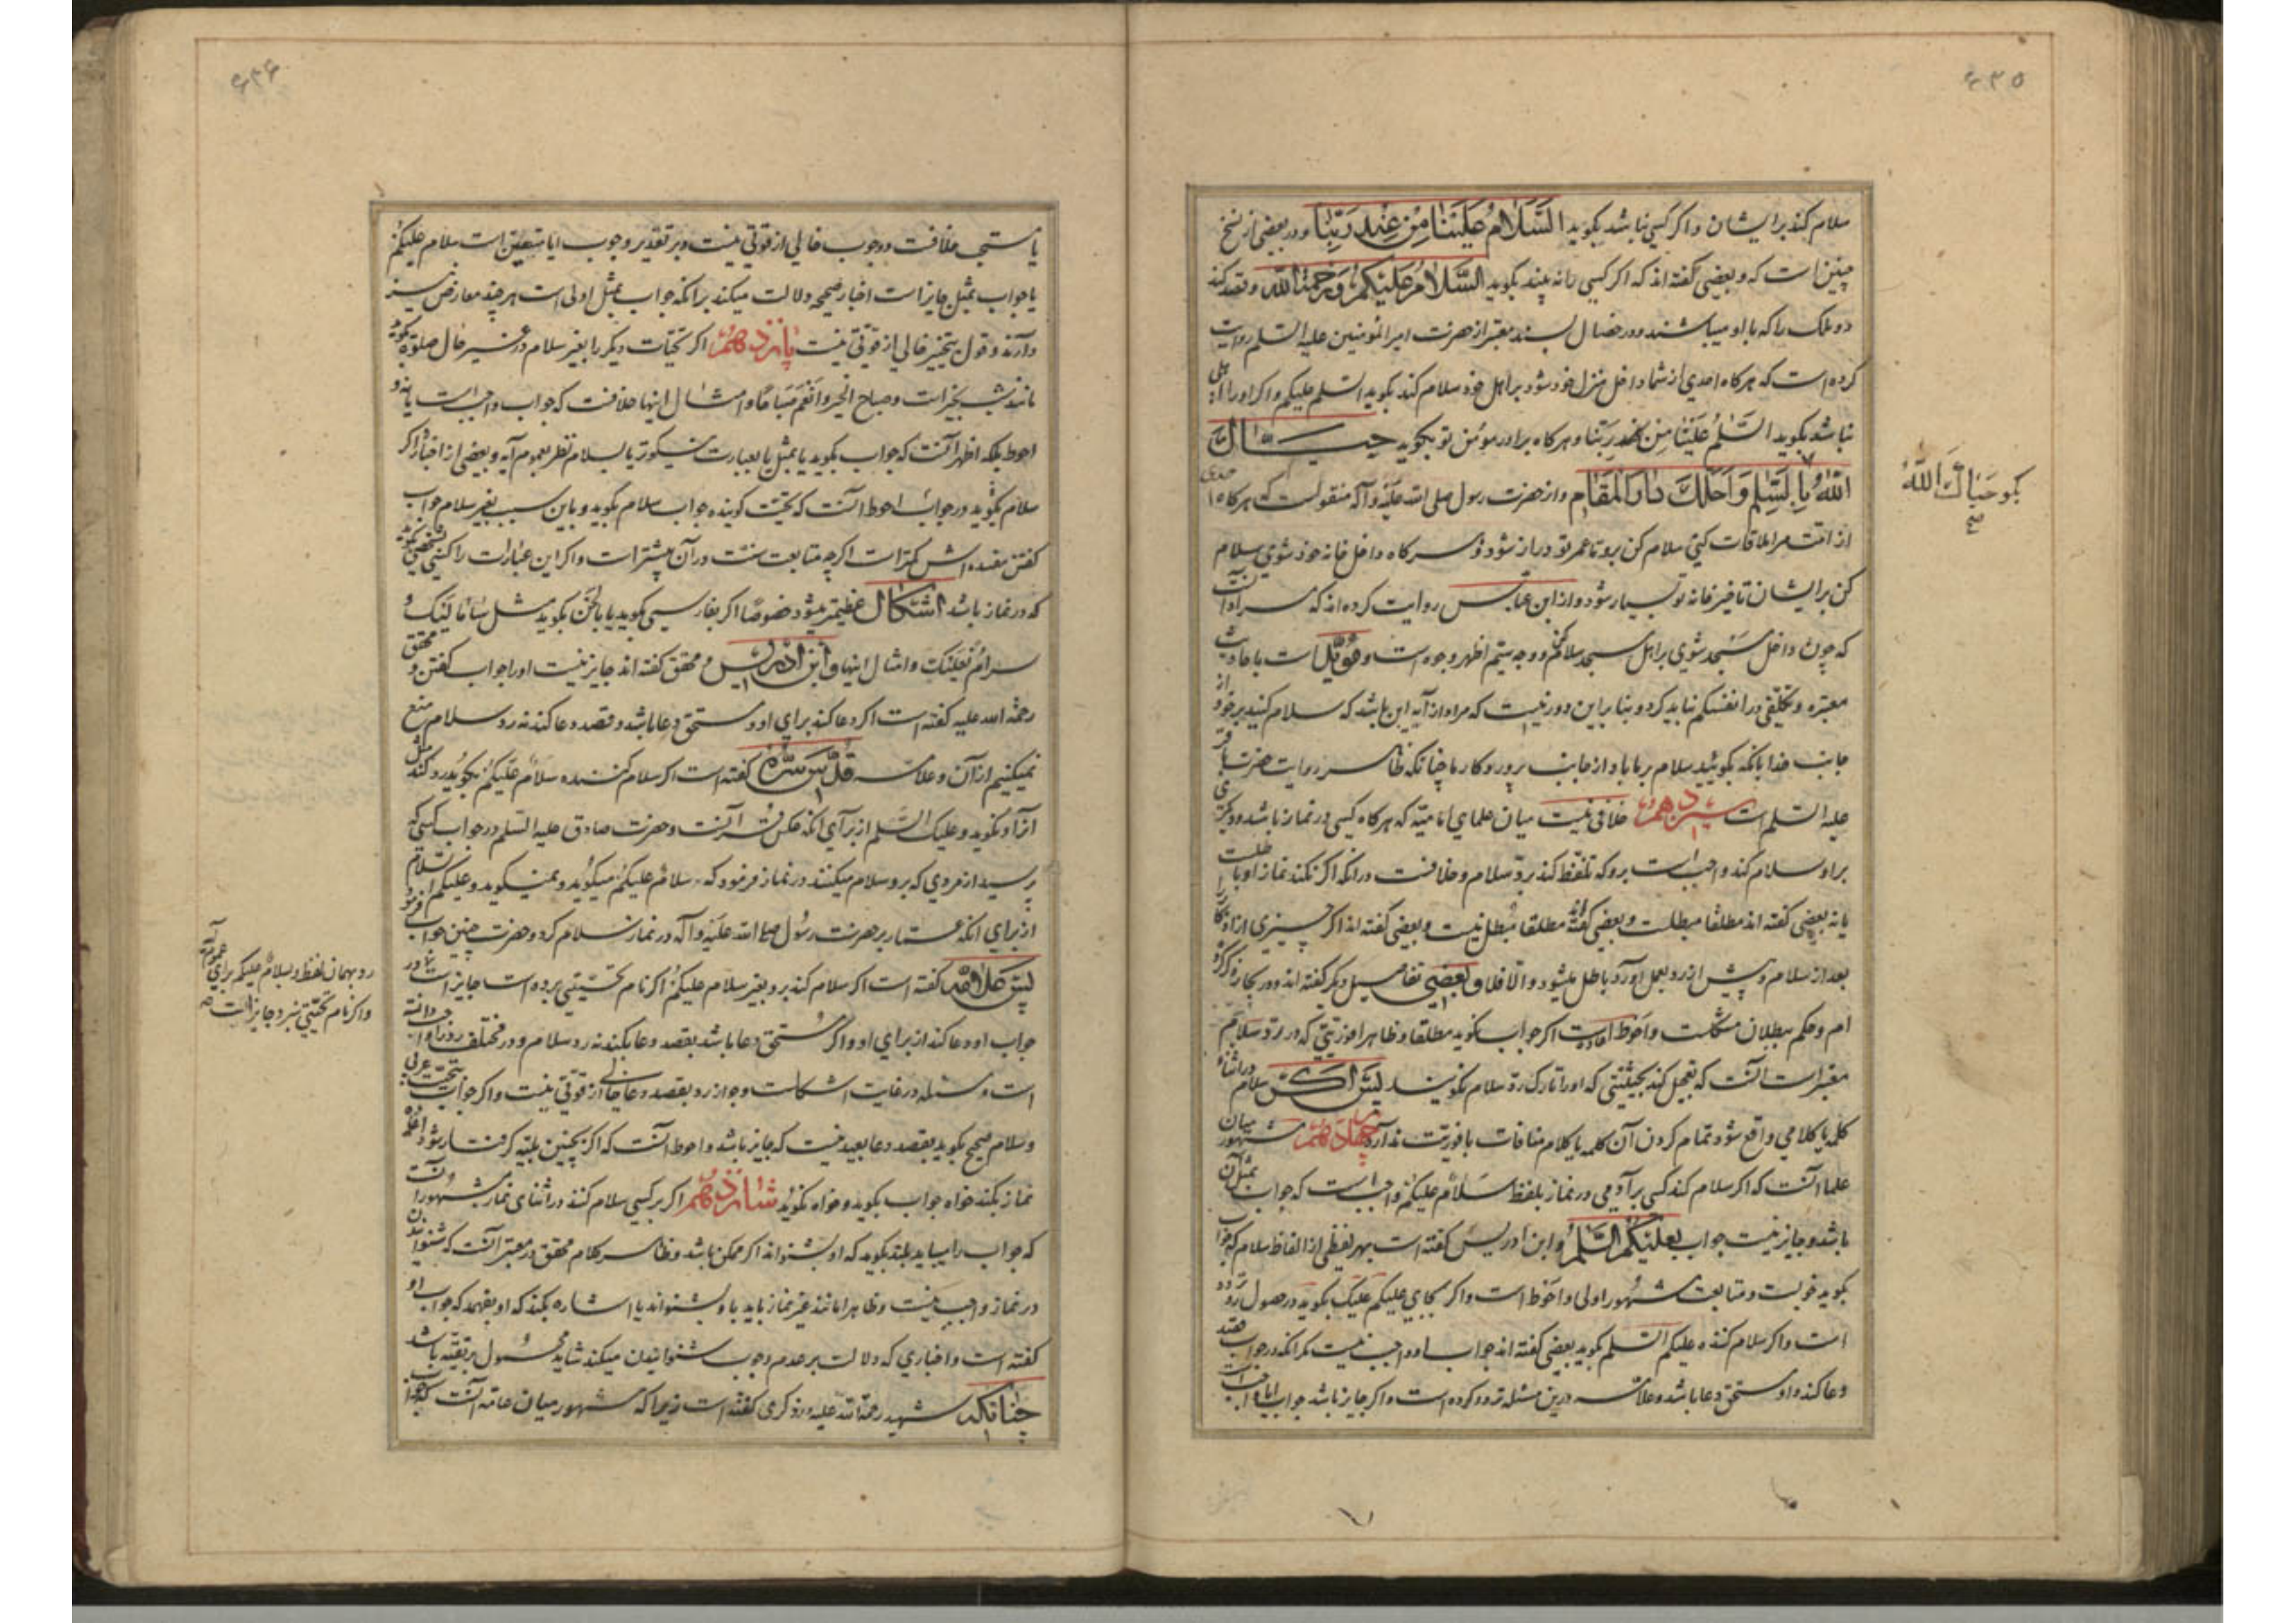 ۶۳۵
سلام کند بر ایشان و اگر کسی نباشد بگوید السَّلامُ عَلَیْنا مِنْ عِنْدِ رَبِّنا و در بعضی از نسخ
چنین است که و بعضی گفته‌اند که اگر کسی را نه بیند بگوید السَّلامُ عَلَیْکُمْ وَرَحْمَةُ الله و قصد کند
دو ملک را که با او میباشند و در خصال بسند معتبر از حضرت امیر المؤمنین علیه السلم روایت
کرده است که هرکاه احدی از شما داخل منزل خود شود بر اهل خود سلام کند بگوید السلم علیکم و اکر او را اهلی
نباشد بگوید السَّلمُ عَلَیْنا مِن عِنْدِ رَبِّنا و هرکاه برادر مؤمن تو بگوید حیاک
اللهُ بِالسَّلِمِ وَاَحَلَّكَ دارَ الْمَقام و از حضرت رسول صلی الله علیه و آله منقولست که هرکاه احدی
از امت مرا ملاقات کنی سلام کن برو تا عمر تو دراز شود و هرکاه داخل خانه خود شوی سلام
کن بر ایشان تا خیر خانه تو بسیار شود و از ابن عباس روایت کرده‌اند که مراد آنست
که چون داخل مسجد شوی بر اهل مسجد سلام کن و وجه ستم اظهر وجوه است و مؤیّد است باحادیث
معتبره و تکلفی در انفسکم نباید کرد و بنا براین دور نیست که مراد از آیه این باشد که سلام کنید بر خود از
جانب خدا بانکه بگوئید سلام بر ما باد از جانب پروردکار ما چنانکه ظاهر روایت حضرت باقر
علیه السلم است سیزدهم خلافی نیست میان علمای امامیّه که هرکاه کسی در نماز باشد و دیگری
بر او سلام کند واجب است برو که تلفظ کند بردّ سلام و خلافست در آنکه اگر نکند نماز او باطلست
یا نه بعضی گفته‌اند مطلقا مبطلست و بعضی گفته‌اند مطلقا مبطل نیست و بعضی گفته‌اند اگر چیزی از اذکار
بعد از سلام و پیش از رد بعمل آورد باطل میشود و الا فلا و بعضی تفاصیل دیگر گفته‌اند و در بحار ذکر کرده
ام و حکم ببطلان مشکلست و احوط اعاده است اگر جواب نگوید مطلقا و ظاهرا فوریتی که در ردّ سلام
معتبر است آنست که تعجیل کند بحیثیتی که او را تارک ردّ سلام نگویند پس اگر سلام در اثناء
کلمه یا کلامی واقع شود تمام کردن آن کلمه یا کلام منافات با فوریت ندارد چهاردهم مشهور میان
علما آنست که اگر سلام کند کسی بر آدمی در نماز بلفظ سَلامٌ علیکم واجب است که جواب بمثل آن
باشد و جایز نیست جواب بعلیکم السَّلم و ابن ادریس گفته است بهر لفظی از الفاظ سلام که جواب
بگوید خوبست و متابعت مشهور اولی و احوط است و اگر بجای علیکم علیک بگوید در حصول رد تردد
است و اگر سلام کننده علیکم السلم بگوید بعضی گفته‌اند جواب او واجب نیست مگر آنکه در جواب قصد
دعا کند و او مستحق دعا باشد و علامه درین مسئله تردد کرده است و اگر جایز باشد جواب ایا واجب است
بکو حَیّاكَ اللهُ
صح
۶۳۶
یا مستحب خلافست و وجوب خالی از قوتی نیست و بر تقدیر وجوب ایا متعین است سلام علیکم
یا جواب بمثل جایز است اخبار صحیحه دلالت میکند برانکه جواب بمثل اولی است هر چند معارض نیز
دارند و قول بتخییر خالی از قوتی نیست پانزدهم اکر تحیات دیگر را بغیر سلام در غیر حال صلوة بگوید
مانند شب بخیرات و صباح الخیر و انعم صباحًا و امثال اینها خلافست که جواب واجبست یا نه و
احوط بلکه اظهر آنست که جواب بگوید یا بمثل یا بعبارت نیکوتر یا بسلام نظر بعموم آیه و بعضی از اخبار و اکر
سلام بگوید در جواب احوط آنست که تحیت کوینده جواب سلام بگوید و باین سبب بغیر سلام جواب
گفتن مفسده‌اش کمتر است اگرچه متابعت سنّت در آن بیشتر است و اگر این عبارات را کسی بشخصی بگوید
که در نماز باشد اشکال عظیمتر میشود خصوصًا اکر بفارسی بگوید یا با لحن بگوید مثل ساما لیک و
سرام لعلیک و امثال اینها و ابن ادریس و محقق گفته‌اند جایز نیست او را جواب گفتن و محقق
رحمة الله علیه گفته است اکر دعا کند برای او و مستحق دعا باشد و قصد دعا کند نه رد سلام منع
نمیکنیم از آن و علامه قدّس سرّه گفته است اکر سلام کننده سلامٌ علیکم بگوید رد کند مثل
آنرا و نگوید و علیک السَّلم از برای انکه عکس قرآنست و حضرت صادق علیه السلم در جواب کسی که
پرسید از مردی که برو سلام میکنند در نماز فرمود که سلام علیکم میگوید و نمیگوید و علیکم السلام
از برای انکه عمار بر حضرت رسول صلی الله علیه و آله در نماز سلام کرد و حضرت چنین جواب فرمود
پس علامه گفته است اکر سلام کند برو بغیر سلام علیکم اکر نام تحیّتی برده است جایز است
جواب او و دعا کند از برای او و اکر مستحق دعا باشد بقصد دعا بکند نه رد سلام و در مختلف رد را واجب دانسته
است و مسئله در غایت اشکالست و جواز رد بقصد دعا خالی از قوتی نیست و اکر جواب بتحیت عربی
و سلام صحیح بگوید بقصد دعا بعید نیست که جایز باشد و احوط آنست که اکر بچنین بلیّه کرفتار شود اعاده
نماز بکند خواه جواب بگوید و خواه نگوید شانزدهم اکر بر کسی سلام کنند در اثنای نماز مشهور آنست
که جواب را میباید بلند بگوید که او بشنواند اکر ممکن باشد و ظاهر کلام محقق در معتبر آنست که شنوانیدن
در نماز واجب نیست و ظاهرا مانند غیر نماز باید یا بشنواند یا اشاره بکند که او بفهمد که جواب او
گفته است و اخباری که دلالت بر عدم وجوب شنوانیدن میکند شاید محمول بر تقیّه باشد
چنانکه شهید رحمة الله علیه در ذکری گفته است زیرا که مشهور میان عامه آنست که
رد بهمان لفظ و سلام علیکم برای عموم آیه
و اگر نام تحیّتی نبرد جایز است